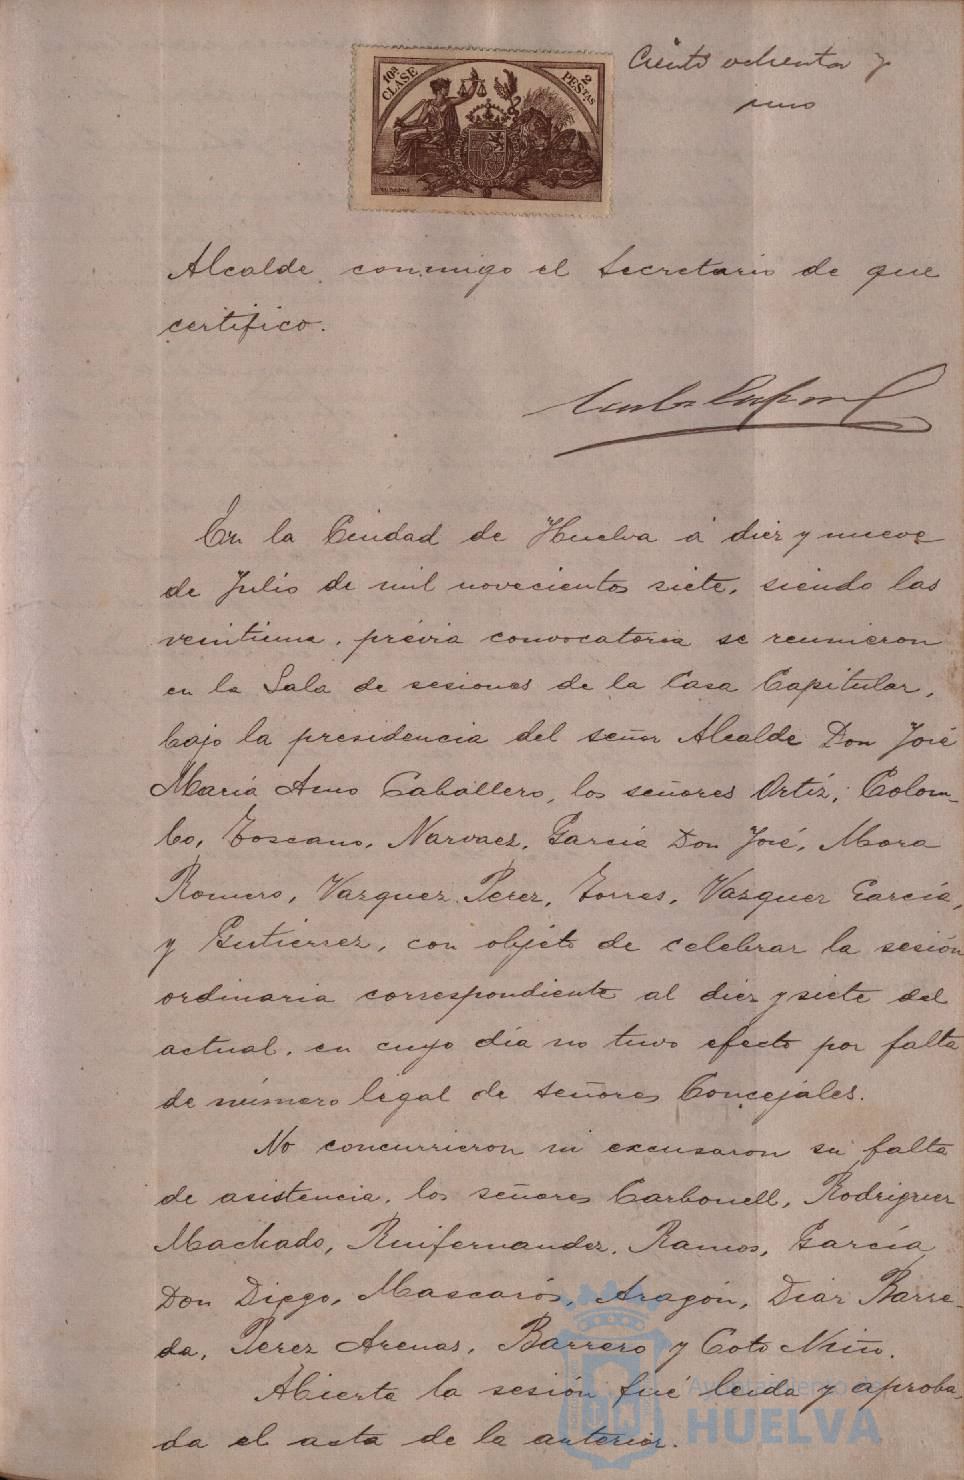 Ciento ochenta y
uno
10ª CLASE
2 PESTAS
Alcalde conmigo el Secretario de que
certifico.
En la Ciudad de Huelva á diez y nueve
de Julio de mil novecientos siete, siendo las
veintiuna, prévia convocatoria se reunieron
en la Sala de sesiones de la Casa Capitular,
bajo la presidencia del señor Alcalde Don José
María Amo Caballero, los señores Ortíz, Colom-
bo, Toscano, Narvaez, García Don José, Mora
Romero, Vazquez Perez, Torres, Vazquez García,
y Gutierrez, con objéto de celebrar la sesión
ordinaria correspondiente al diez y siete del
actual, en cuyo día no tuvo efecto por falta
de número legal de señores Concejáles.
No concurrieron ni excusaron su falta
de asistencia, los señores Carbonell, Rodriguez
Machado, Ruifernandez, Ramos, García
Don Diego, Mascarós, Aragón, Diaz Barre-
da, Perez Arenas, Barrero y Coto Niño.
Abierta la sesión fué leida y aproba-
da el acta de la anterior.
Ayuntamiento de
HUELVA